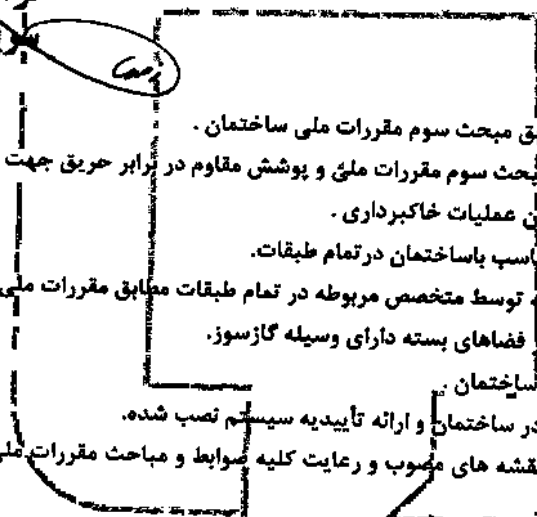 ق مبحث سوم مقررات ملی ساختمان .
بحث سوم مقررات ملی و پوشش مقاوم در برابر حریق جهت
ن عملیات خاکبرداری .
اسب باساختمان درتمام طبقات.
توسط متخصص مربوطه در تمام طبقات مطابق مقررات ملی
فضاهای بسته دارای وسیله گازسوز.
ساختمان .
در ساختمان و ارائه تأییدیه سیستم نصب شده.
نقشه های مصوب و رعایت کلیه ضوابط و مباحث مقررات ملی